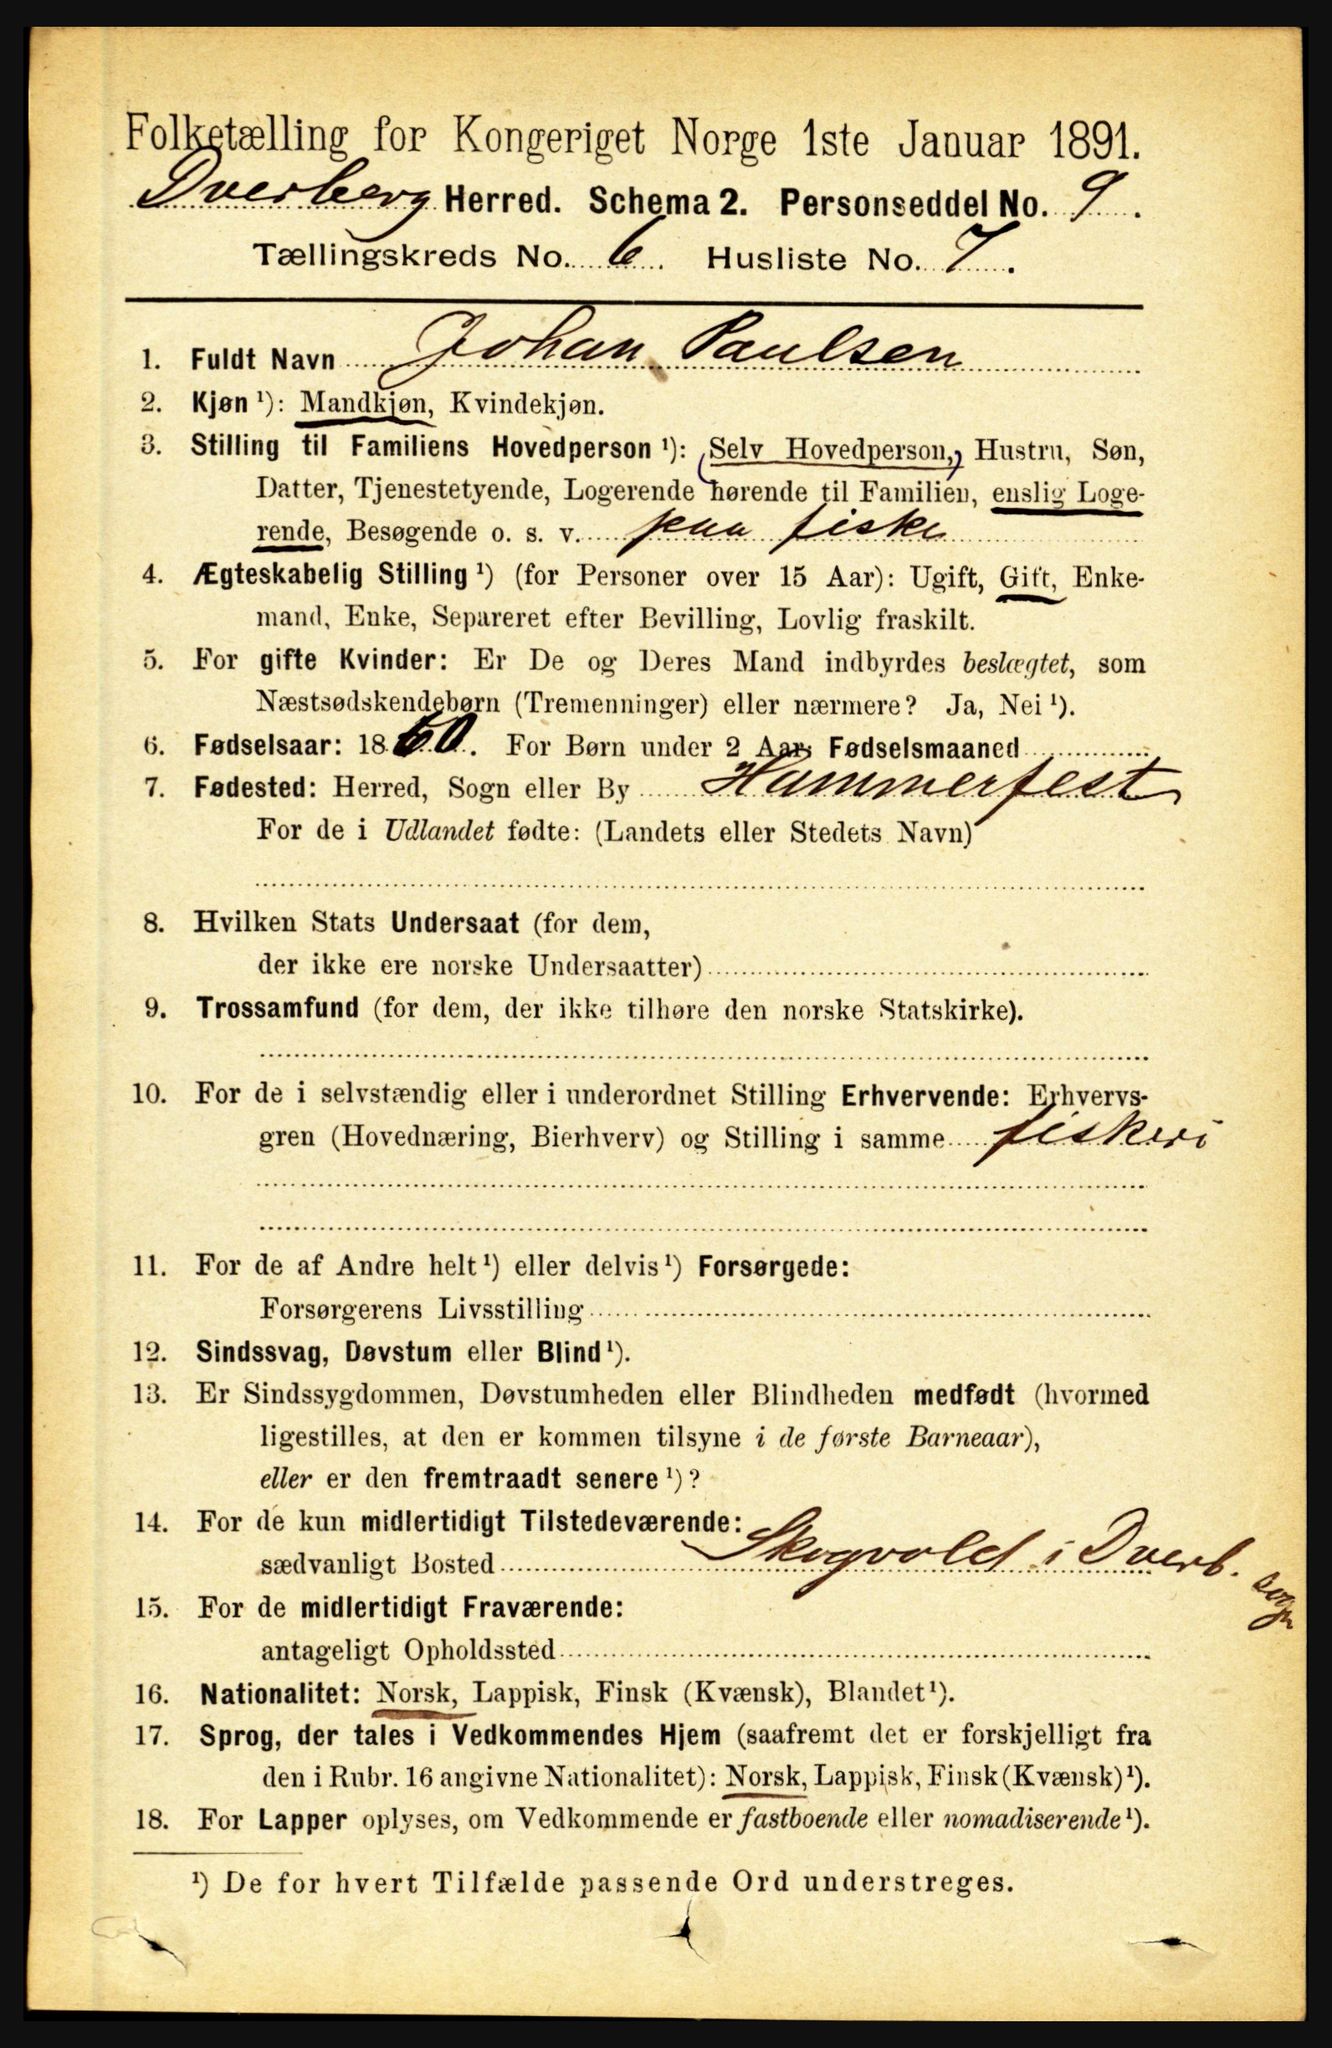 Folketælling for Kongeriget Norge 1ste Januar 1891.
Dverberg Herred. Schema 2. Personseddel No. 9.
Tællingskreds No. 6. Husliste No. 7.
1. Fuldt Navn Johan Paulsen
2. Kjøn ¹): Mandkjøn, Kvindekjøn.
3. Stilling til Familiens Hovedperson ¹): (Selv Hovedperson,) Hustru, Søn,
Datter, Tjenestetyende, Logerende hørende til Familien, enslig Loge-
rende, Besøgende o. s. v. paa fiske
4. Ægteskabelig Stilling ¹) (for Personer over 15 Aar): Ugift, Gift, Enke-
mand, Enke, Separeret efter Bevilling, Lovlig fraskilt.
5. For gifte Kvinder: Er De og Deres Mand indbyrdes beslægtet, som
Næstsødskendebørn (Tremenninger) eller nærmere? Ja, Nei ¹).
6. Fødselsaar: 1860. For Børn under 2 Aar, Fødselsmaaned
7. Fødested: Herred, Sogn eller By Hammerfest
For de i Udlandet fødte: (Landets eller Stedets Navn)
8. Hvilken Stats Undersaat (for dem,
der ikke ere norske Undersaatter)
9. Trossamfund (for dem, der ikke tilhøre den norske Statskirke).
10. For de i selvstændig eller i underordnet Stilling Erhvervende: Erhvervs-
gren (Hovednæring, Bierhverv) og Stilling i samme fiskeri
11. For de af Andre helt ¹) eller delvis ¹) Forsørgede:
Forsørgerens Livsstilling
12. Sindssvag, Døvstum eller Blind ¹).
13. Er Sindssygdommen, Døvstumheden eller Blindheden medfødt (hvormed
ligestilles, at den er kommen tilsyne i de første Barneaar),
eller er den fremtraadt senere ¹)?
14. For de kun midlertidigt Tilstedeværende:
sædvanligt Bosted Skogvold i Dverb. sogn
15. For de midlertidigt Fraværende:
antageligt Opholdssted
16. Nationalitet: Norsk, Lappisk, Finsk (Kvænsk), Blandet ¹).
17. Sprog, der tales i Vedkommendes Hjem (saafremt det er forskjelligt fra
den i Rubr. 16 angivne Nationalitet): Norsk, Lappisk, Finsk (Kvænsk) ¹).
18. For Lapper oplyses, om Vedkommende er fastboende eller nomadiserende ¹).
¹) De for hvert Tilfælde passende Ord understreges.